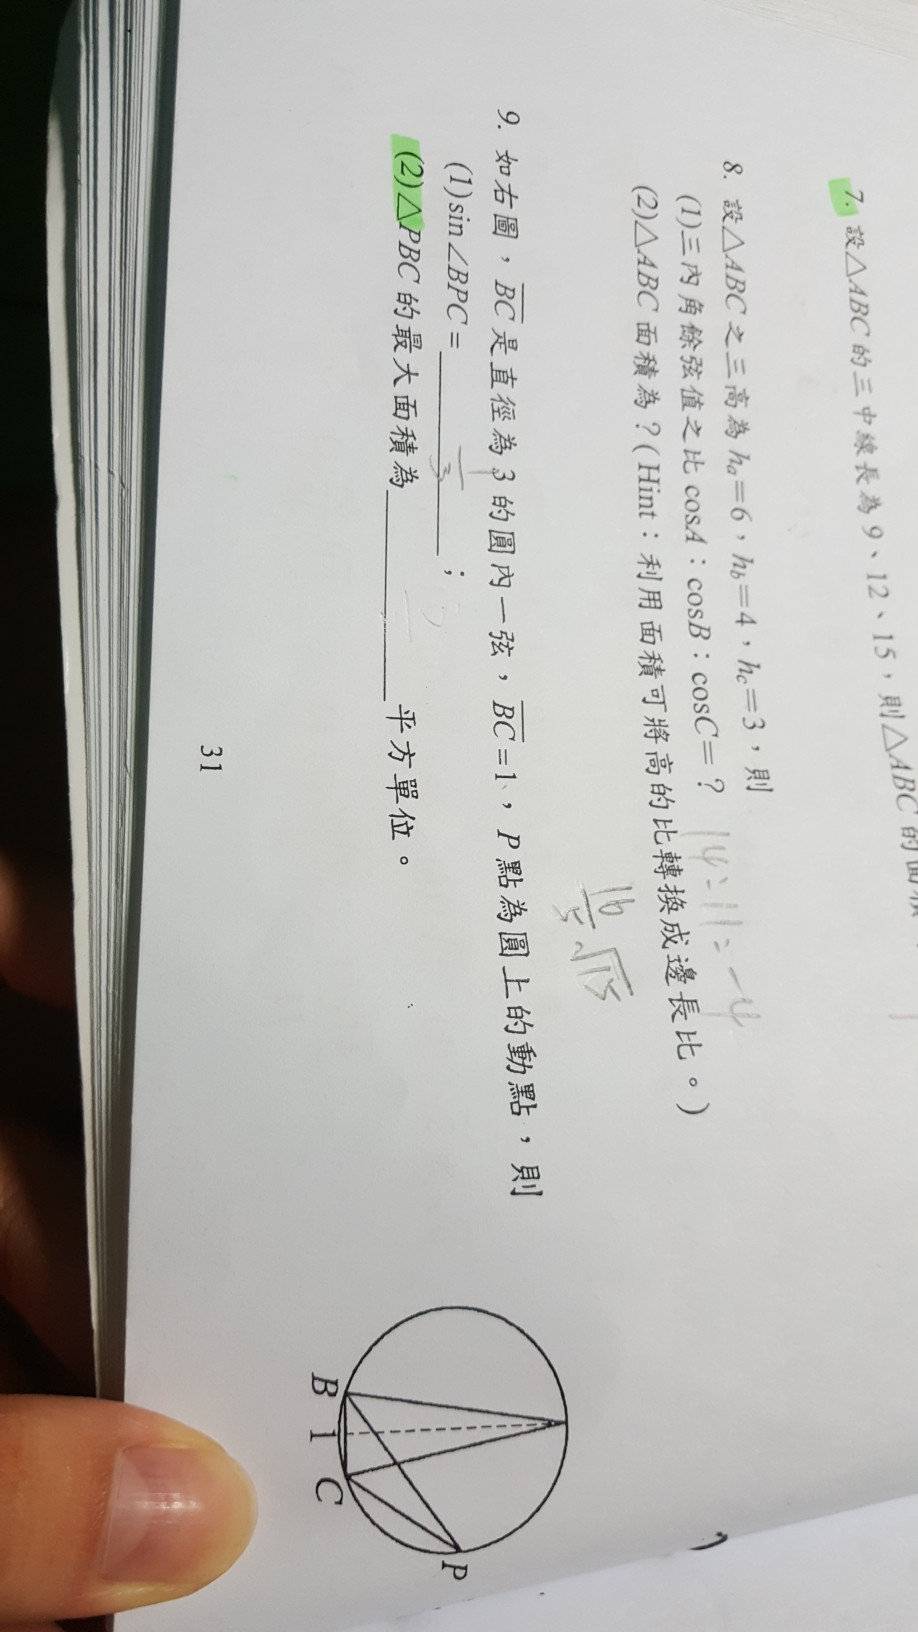 7. 設△ABC的三中線長為9、12、15，則△ABC的面積
8. 設△ABC之三高為ha=6，hb=4，hc=3，則
(1)三內角餘弦值之比cosA：cosB：cosC=？ 14:11:-4
(2)△ABC面積為？(Hint：利用面積可將高的比轉換成邊長比。)
16/5 √15
9. 如右圖，BC是直徑為3的圓內一弦，BC=1，P點為圓上的動點，則
(1)sin∠BPC=________； 1/3
(2)△PBC的最大面積為________平方單位。
B 1 C P
31